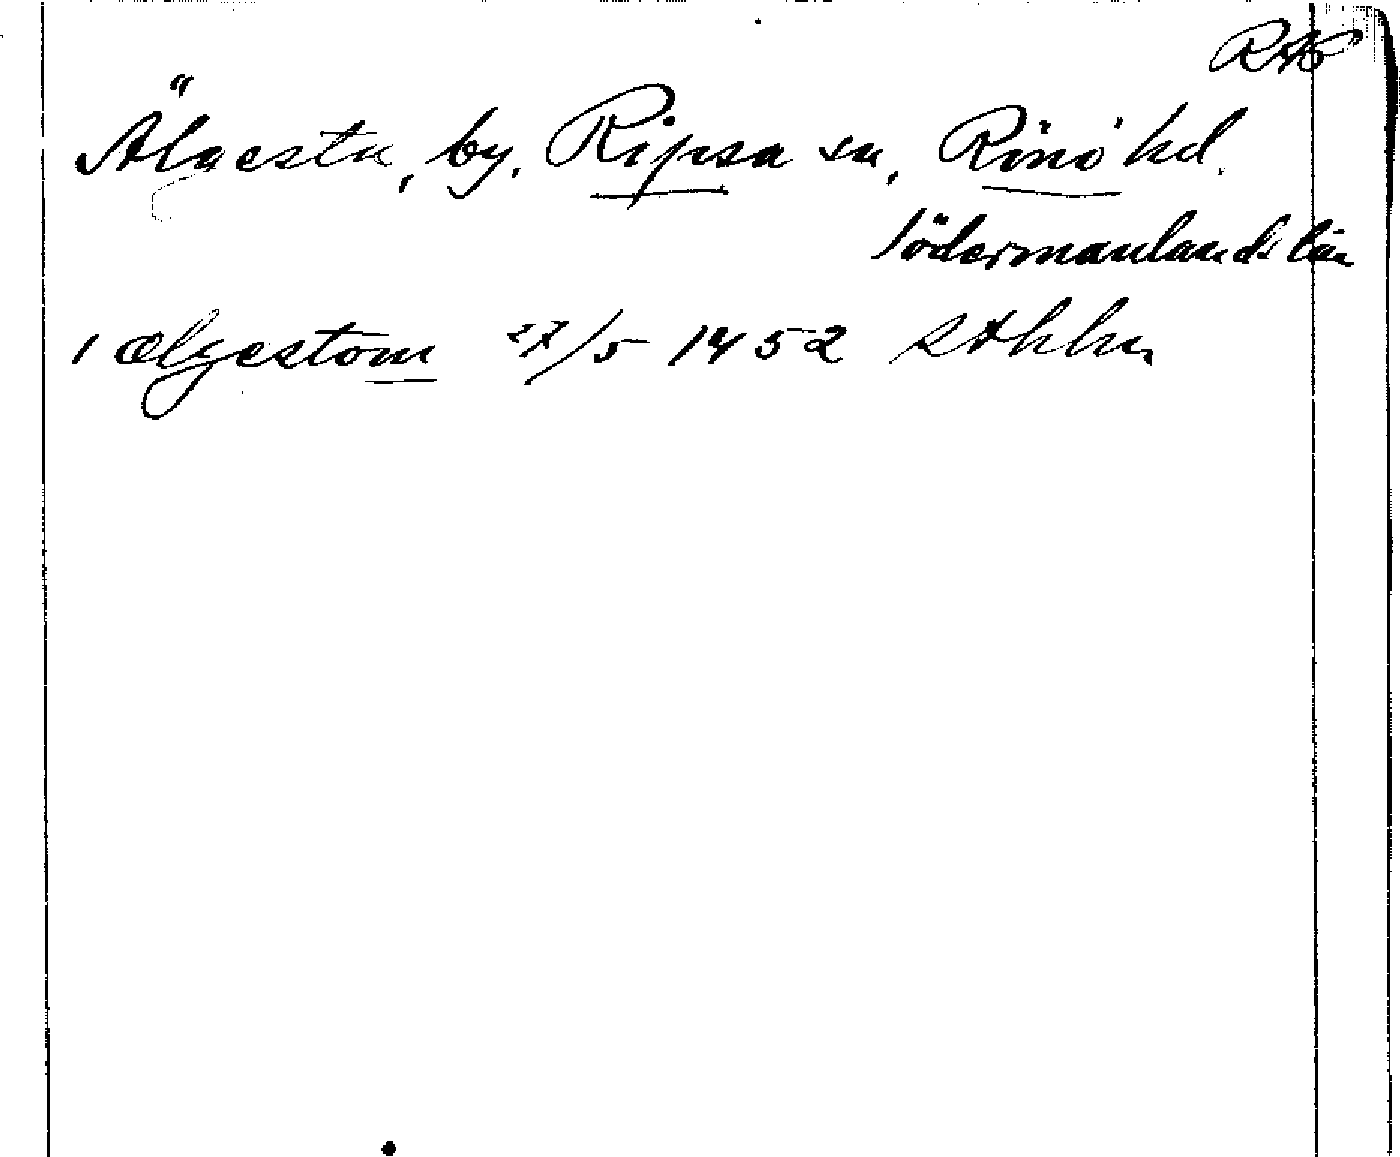 Älgesta, by, Ripsa sn, Rönö hd.
Södermanlands län
i ælgestom 27/5 1452